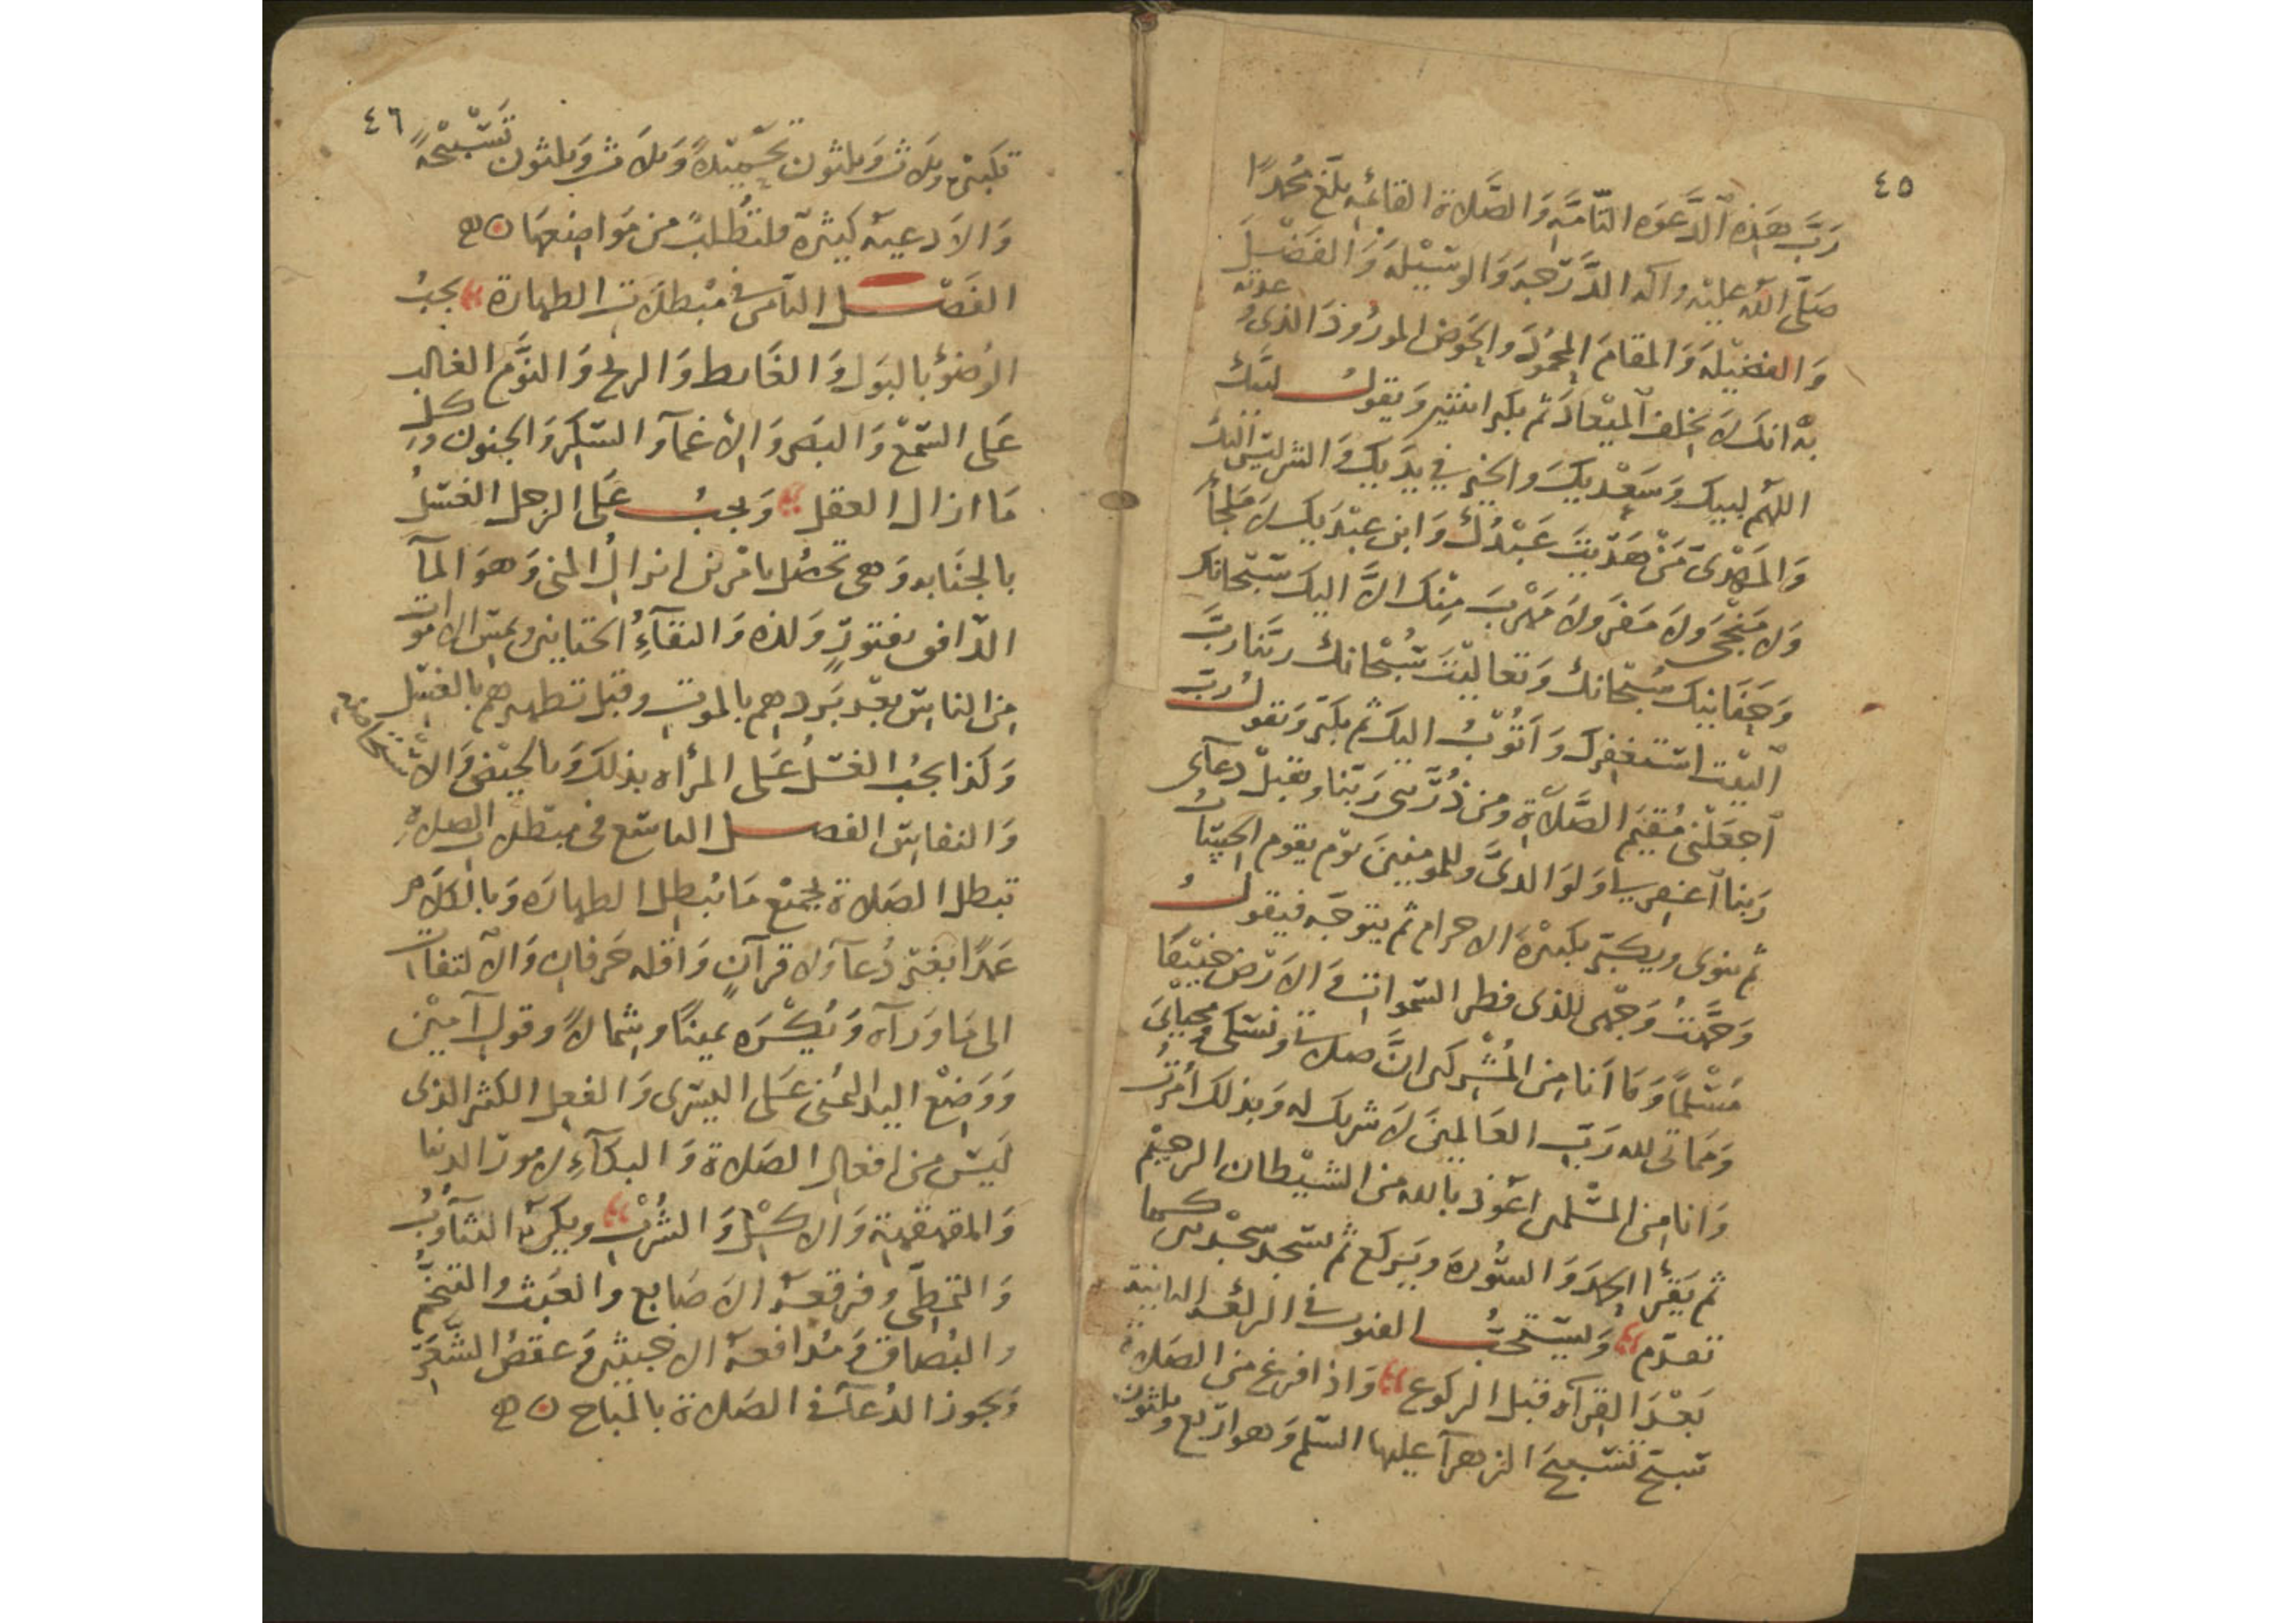 ٤٥
رَبَّ هَذِهِ الدَّعوَه التّامَّهِ وَالصَّلاة القائمَهِ بلّغ مُحمدًا
صَلّى الله عليْه وآله الدَّرَجهَ وَالوَسِيْلَهَ وَالفَضْلَ
وَالفضيْلهَ وَالمقامَ المحمُوْدَ وَالحَوضَ المورُوْدَ الذى وعدته
بهْ انكَ لاَ تخلفُ الميْعادَ ثم يكبر اثنتين وَيقولُ لبيْكَ
اللهُمّ لبيك وَسَعْدَيكَ والخيْر في يدَيكَ وَالشر ليْسَ اليْكَ
وَالمَهْدىُّ مَنْ هَدَيْتَ عَبْدُكَ وَابن عبْدَيكَ لاَ مَلجأَ
وَلاَ مَنْجىَ وَلاَ مَفَرَ ولاَ مَهْرَبَ مِنْك الاَّ اليك سُبْحانك
وَحَنَانَيْك سُبْحانك وَتعاليْتَ سُبْحانك ربّنا ربَّ
البيْت استغفِرك وَأتُوْبُ اليك ثم يكبّر وَيقولُ ربّ
اجعَلْني مُقيْمَ الصَّلاَةِ ومن ذُرّيتى رَبّنا وتقبّلْ دعآى
رَبنا اغفر لى وَلوَالدىَّ وللمومنينَ يَوْم يقوم الحِسَابُ
ثم ينوى ويكبّر تكبيْرَة الاحرام ثم يتوَجّه فيقولُ
وَجَّهْتُ وَجْهى للذى فطر السّموات وَالاَرْضَ حَنيْفًا
مُسْلمًا وَمَا اَنا مِن المُشْركين انَّ صلاتى ونسُكى ومحياىَ
وَمَمَاتى لله رَبّ العَالمينَ لاَ شريك له وَبذلكَ أُمرْتُ
وَانا مِن المسْلمين اَعوذ بالله من الشيْطان الرجيْم
ثم يَقْرأ الحَمْدَ وَالسُّورةَ ويَركع ثم يسْجد سجْدتين كما
تقدّم وَيسْتحَبُّ القنوت في الركعه الثانية
بَعْدَ القِرآه قبل الركوع وَاذا فرغ من الصَلاة
سبّح تسْبيْحَ الزهرآ عليها السّلم وَهو ارْبع وثلثون
٤٦
تكبيرة وثلاَث وَثلثون تحْميْدَةً وَثلاَث وَثلثون تسْبيْحةً
وَالاَدعيه كثيْرة فلتُطْلب من مَوَاضعهَا
الفَصْل الثامن في مُبْطلاَت الطهارة يجبُ
الوُضوُ بالبَوْل وَالغَايط وَالريح وَالنوَّم الغالب
عَلى السّمْع وَالبَصَر وَالاِغمآ والسّكر وَالجنون وكل
مَا ازال العقل وَيجبُ عَلى الرجل الغسْلُ
بالجنَابه وَهى تحصُل بامْرين انزال المنى وَهوَ المآ
الدّافق بفتورٍ وَلذه وَالتقآءِ الختانين وبمسّ الاموات
من الناس بعْد بَرْدهم بالموت وقبل تطهيرهم بالغسْل
وَكذا يجبُ الغسْلُ عَلى المرأه بذلكَ وَبالحيْض وَالاسْتحاضه
وَالنفاس الفصل التاسع فى مبطلات الصلاةِ
تبطل الصَلاة بجميْع مَا يُبْطل الطهارَه وَبالكلاَم
عَمدًا بغيْر دُعآ وَلا قرآنٍ وَاقله حَرفان وَالالتفات
الى مَا وَرآه وَيُكْرَه يمينًا وشمالاً وقول آميْن
وَوَضعْ اليدِ اليُمنى عَلى اليسْرى وَالفعل الكثير الذى
ليَسْ من افعال الصَلاة وَالبكآءِ لامورْ الدنيا
وَالقهقهة وَالاكلْ وَالشُرْب ويكره التثآوُبُ
وَالتَمَطى وفرقعة الاَصَابع والعَبَث والتنخُّم
والبُصَاق وَمُدَافعة الاخبثين وَعقصُ الشَعَر
وَيجوز الدُعآ في الصَلاة بالمُبَاح